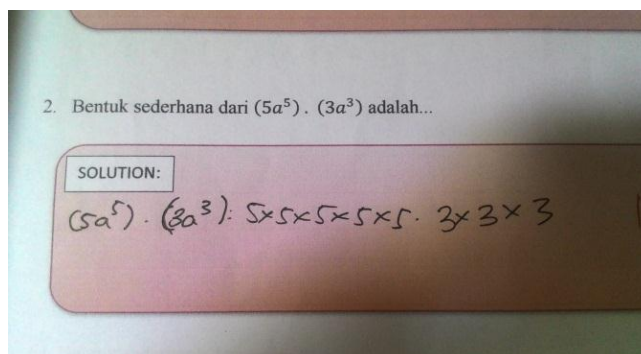 2. Bentuk sederhana dari (5a⁵) . (3a³) adalah...
SOLUTION:
(5a⁵) . (3a³): 5×5×5×5×5. 3×3×3